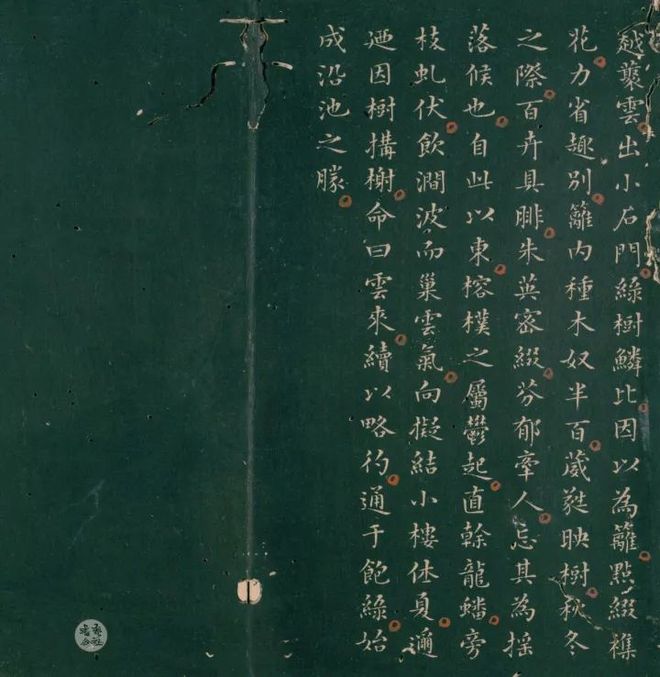 越襲雲出小石門緜樹鱗比因以為籬點綴襍
花力省趣別籬內種木奴半百葳蕤映樹秋冬
之際百卉具腓朱英密綴芬郁牽人忘其為揺
落候也自此以東榕樸之屬鬱起直榦龍蟠旁
枝虬伏飲澗波而巢雲氣向擬結小樓休夏邇
迺因樹搆榭命曰雲來續以略彴通于飽緜始
成沿池之勝